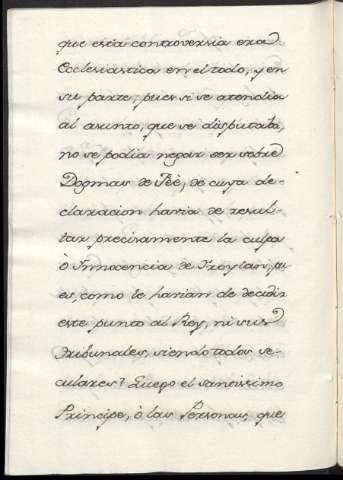 que esta controversia era
Ecclesiastica en el todo, y en
su parte, pues si se atendia
al asunto, que se disputaba,
no se podia negar ser sobre
Dogmas de Fèe, de cuya de-
claracion havia de resul-
tar precisamente la culpa
ò Innocencia de Froylan, pu
es, como le havian de decidir
este punto al Rey, ni sus
tribunales, siendo todos se-
culares? Luego el santissimo
Principe, ò las Personas, que